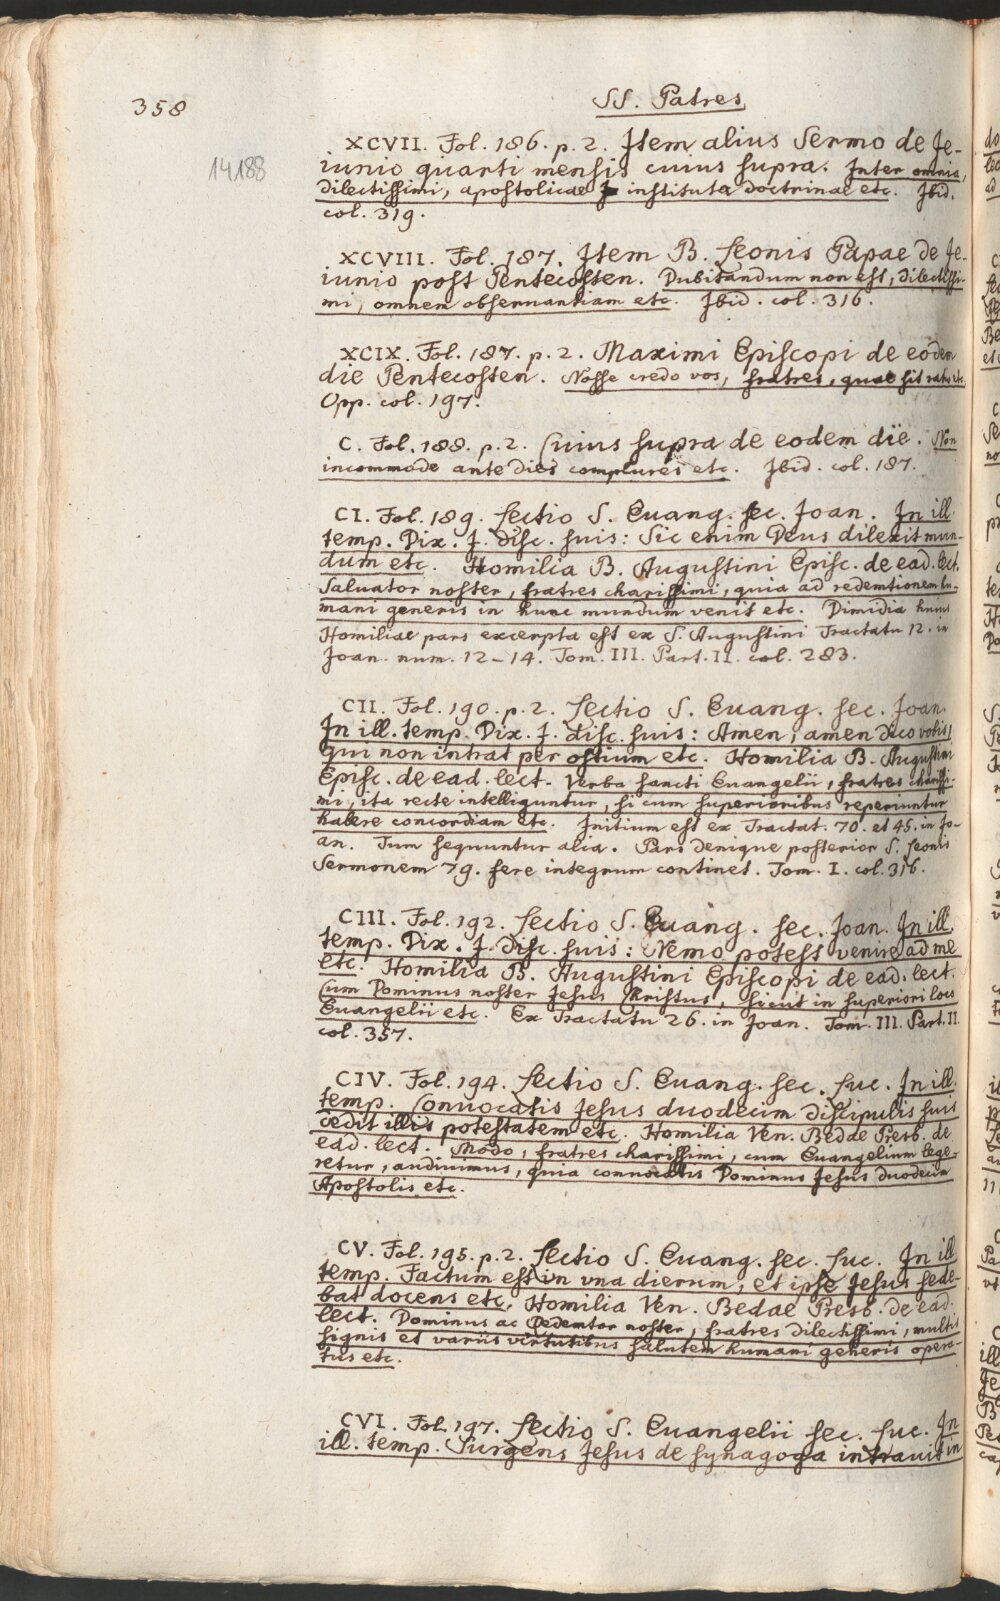 358
SS. Patres
14188
XCVII. Fol. 186. p. 2. Item alius Sermo de Je-
iunio quarti mensis cuius supra. Inter omnia,
dilectissimi, apostolicae instituta doctrinae etc. Ibid.
col. 319.
XCVIII. Fol. 187. Item B. Leonis Papae de Je-
iunio post Pentecosten. Dubitandum non est, dilectissi-
mi, omnem obseruantiam etc. Ibid. col. 316.
XCIX. Fol. 187. p. 2. Maximi Episcopi de eodem
die Pentecosten. Nosse credo vos, fratres, quae sit ratio etc.
Opp. col. 197.
C. Fol. 188. p. 2. Cuius supra de eodem die. Non
incommode ante dies complures etc. Ibid. col. 187.
CI. Fol. 189. Lectio S. Euang. sec. Joan. In ill.
temp. Dix. J. disc. suis: Sic enim Deus dilexit mun-
dum etc. Homilia B. Augustini Episc. de ead. lect.
Saluator noster, fratres charissimi, quia ad redemtionem hu-
mani generis in hunc mundum venit etc. Dimidia huius
Homiliae pars excerpta est ex S. Augustini Tractatu 12. in
Joan. num. 12-14. Tom. III. Part. II. col. 283.
CII. Fol. 190. p. 2. Lectio S. Euang. sec. Joan.
In ill. temp. Dix. J. disc. suis: Amen, amen dico vobis,
qui non intrat per ostium etc. Homilia B. Augustini
Episc. de ead. lect. Verba sancti Euangelii, fratres charissi-
mi, ita recte intelliguntur, si cum superioribus reperiuntur
habere concordiam etc. Initium est ex Tractat. 70. et 45. in Jo-
an. Tum sequuntur alia. Pars denique posterior S. Leonis
Sermonem 79. fere integrum continet. Tom. I. col. 316.
CIII. Fol. 192. Lectio S. Euang. sec. Joan. In ill.
temp. Dix. J. disc. suis: Nemo potest venire ad me
etc. Homilia B. Augustini Episcopi de ead. lect.
Cum Dominus noster Jesus Christus, sicut in superiori loco
Euangelii etc. Ex Tractatu 26. in Joan. Tom. III. Part. II
col. 357.
CIV. Fol. 194. Lectio S. Euang. sec. Luc. In ill.
temp. Conuocatis Jesus duodecim discipulis suis
dedit illis potestatem etc. Homilia Ven. Bedae Presb. de
ead. lect. Modo, fratres charissimi, cum Euangelium lege-
retur, audiuimus, quia conuocatis Dominus Jesus duodecim
Apostolis etc.
CV. Fol. 195. p. 2. Lectio S. Euang. sec. Luc. In ill
temp. Factum est in vna dierum, et ipse Jesus sede-
bat docens etc. Homilia Ven. Bedae Presb. de ead.
lect. Dominus ac Redemtor noster, fratres dilectissimi, multis
signis et variis virtutibus salutem humani generis opera-
tus etc.
CVI. Fol. 197. Lectio S. Euangelii sec. Luc. In
ill. temp. Surgens Jesus de synagoga intrauit in